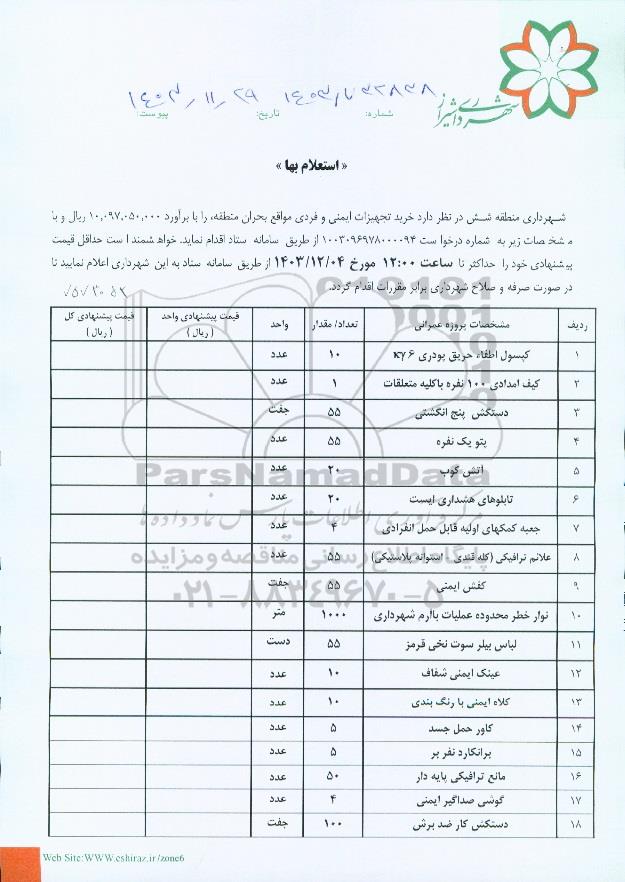 شهرداری شیراز
شماره: ۱۴۰۳/۲۲۸۳۸
تاریخ: ۱۴۰۳/۱۱/۲۹
پیوست:
« استعلام بها »
شهرداری منطقه شش در نظر دارد خرید تجهیزات ایمنی و فردی مواقع بحران منطقه، را با برآورد ۱۰,۰۹۷,۰۵۰,۰۰۰ ریال و با
مشخصات زیر به شماره درخواست ۱۰۰۳۰۹۶۹۷۸۰۰۰۰۹۴ از طریق سامانه ستاد اقدام نماید. خواهشمند است حداقل قیمت
پیشنهادی خود را حداکثر تا ساعت ۱۲:۰۰ مورخ ۱۴۰۳/۱۲/۰۴ از طریق سامانه ستاد به این شهرداری اعلام نمایید تا
در صورت صرفه و صلاح شهرداری برابر مقررات اقدام گردد.
ردیف مشخصات پروژه عمرانی تعداد/ مقدار واحد قیمت پیشنهادی واحد ( ریال ) قیمت پیشنهادی کل ( ریال )
۱ کپسول اطفاء حریق پودری ۶ KY ۱۰ عدد
۲ کیف امدادی ۱۰۰ نفره باکلیه متعلقات ۱ عدد
۳ دستکش پنج انگشتی ۵۵ جفت
۴ پتو یک نفره ۵۵ عدد
۵ آتش کوب ۲۰ عدد
۶ تابلوهای هشداری ایست ۲۰ عدد
۷ جعبه کمکهای اولیه قابل حمل انفرادی ۴ عدد
۸ علائم ترافیکی (کله قندی - استوانه پلاستیکی) ۵۵ عدد
۹ کفش ایمنی ۵۵ جفت
۱۰ نوار خطر محدوده عملیات باآرم شهرداری ۱۰۰۰ متر
۱۱ لباس بیلر سوت نخی قرمز ۵۵ دست
۱۲ عینک ایمنی شفاف ۱۰ عدد
۱۳ کلاه ایمنی با رنگ بندی ۱۰ عدد
۱۴ کاور حمل جسد ۵ عدد
۱۵ برانکارد نفر بر ۵ عدد
۱۶ مانع ترافیکی پایه دار ۵۰ عدد
۱۷ گوشی صداگیر ایمنی ۴ عدد
۱۸ دستکش کار ضد برش ۱۰۰ جفت
ParsNamadData
مرکز فرآوری اطلاعات پارس نماد داده ها
پایگاه اطلاع رسانی مناقصه و مزایده
۰۲۱-۸۸۳۴۹۶۷۰-۵
Web Site:WWW.eshiraz.ir/zone6